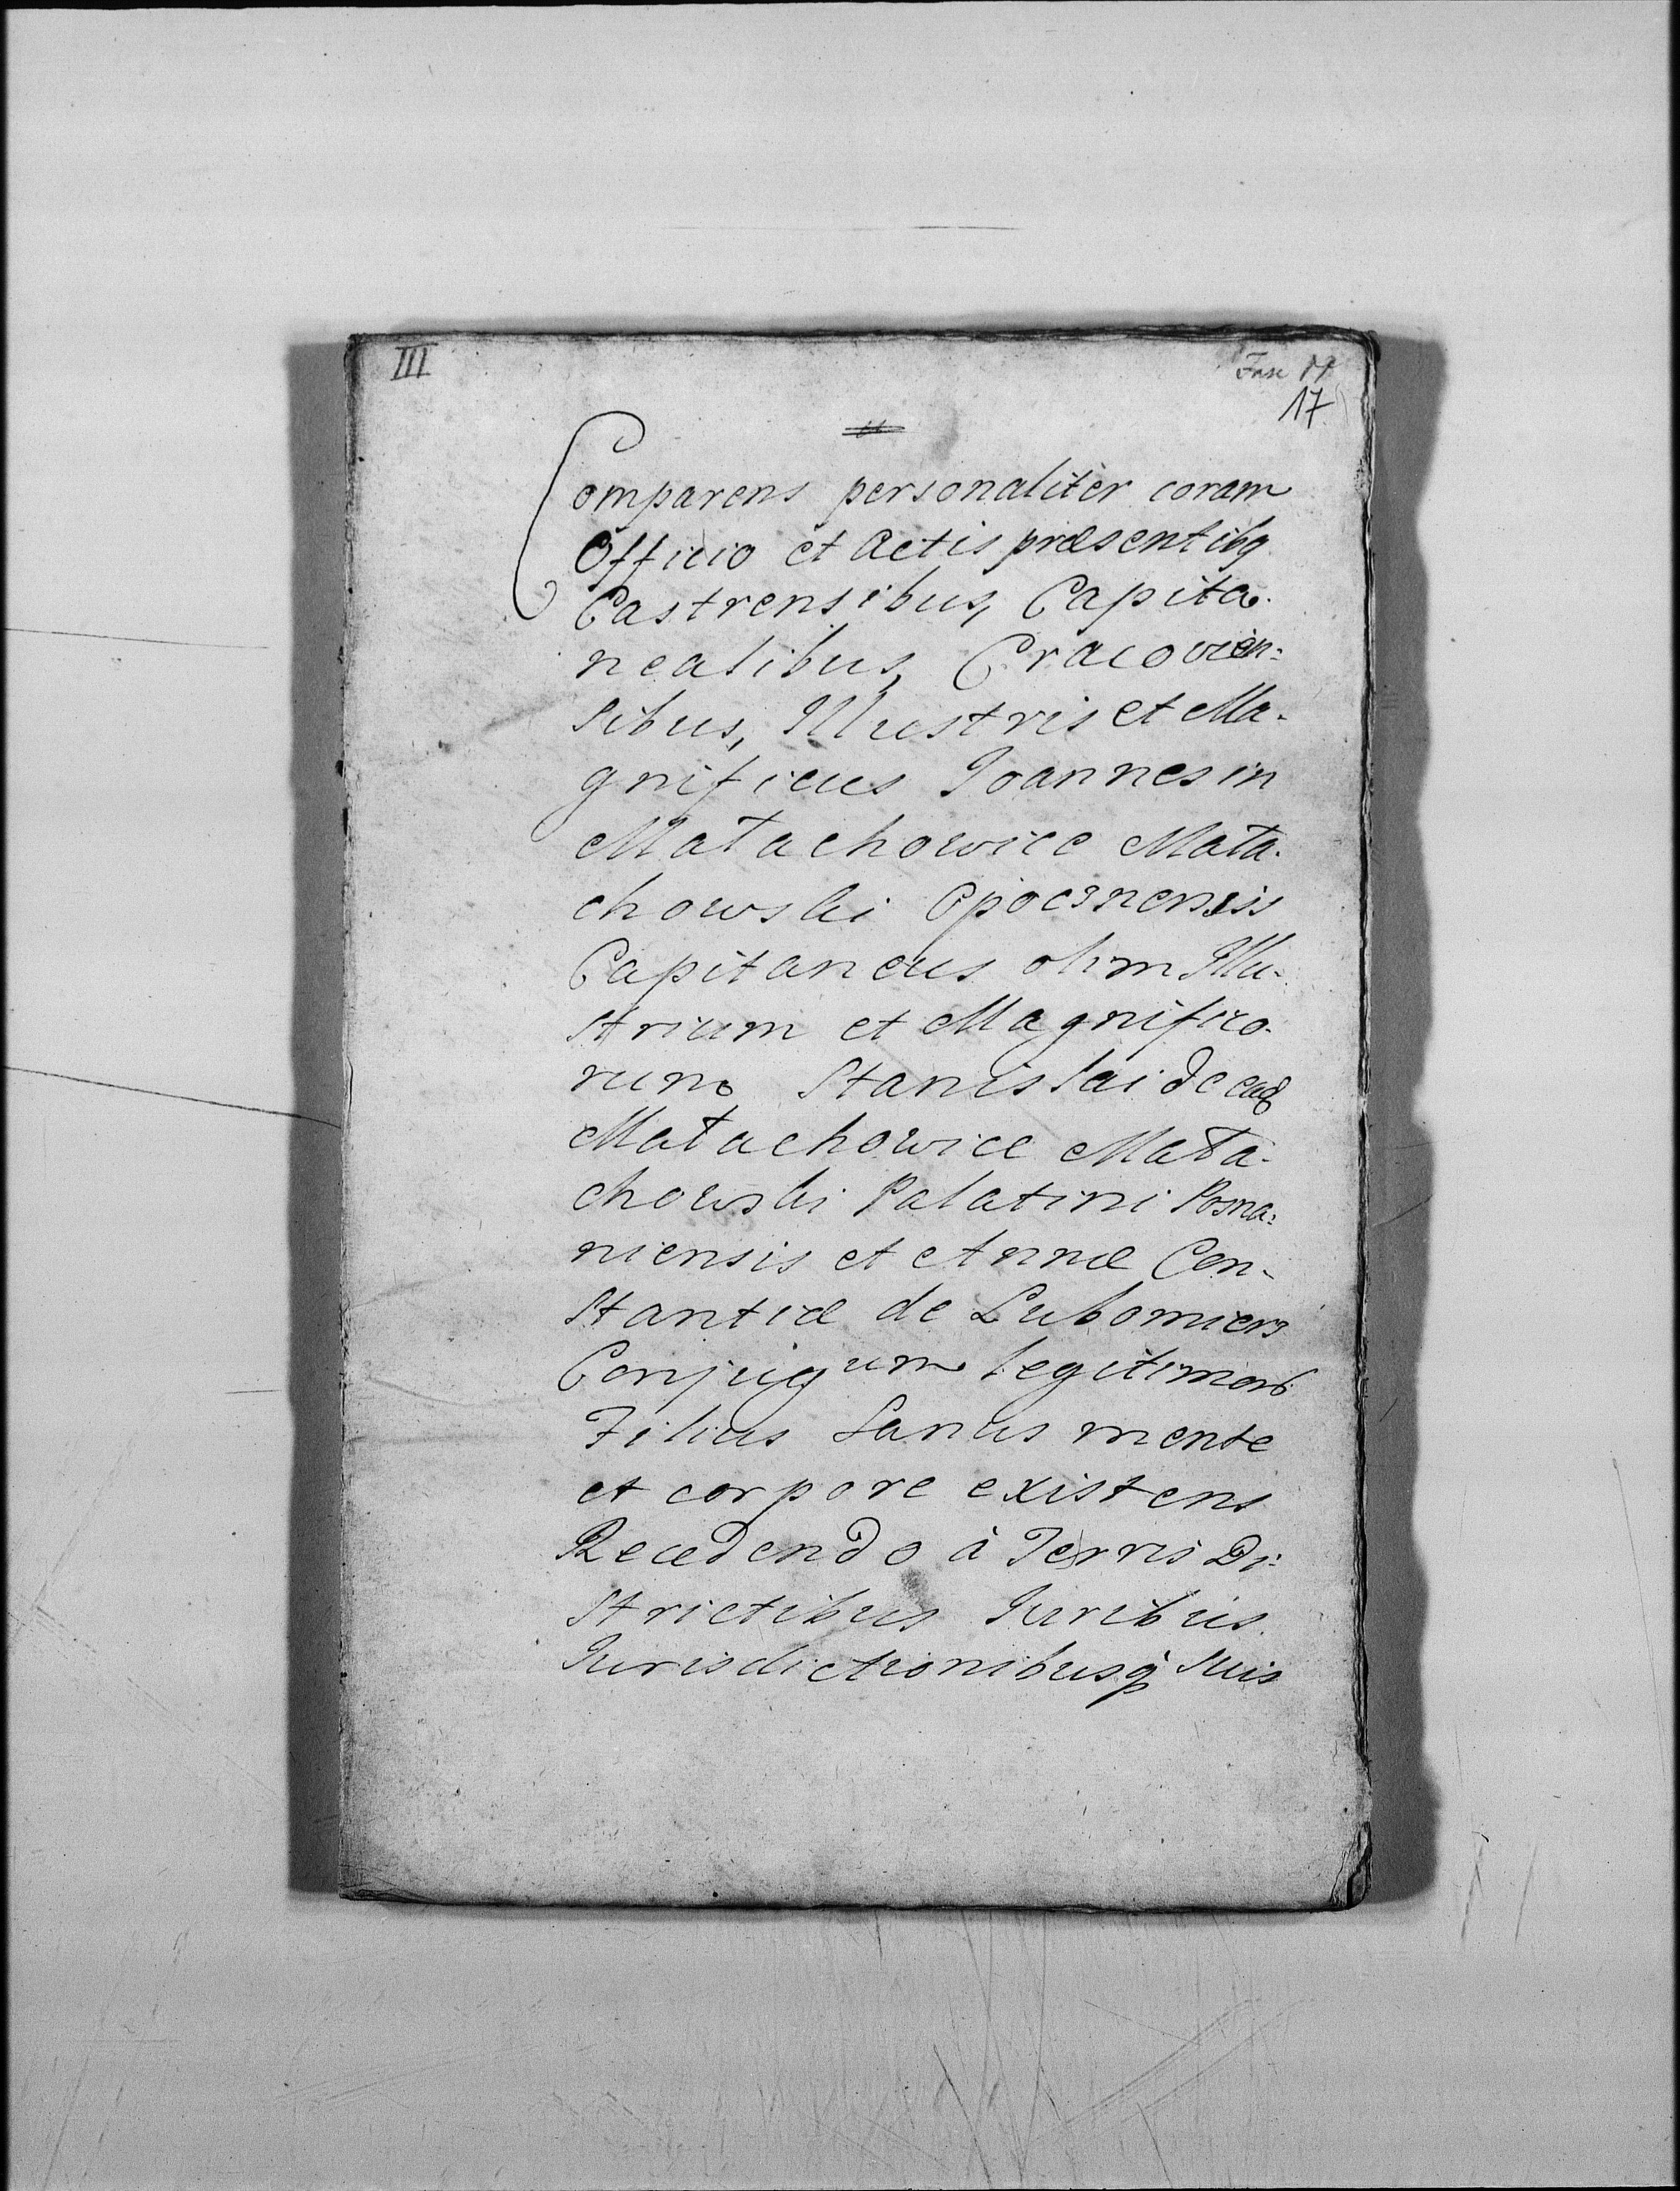 III
17
Comparens personalitèr coram
Officio et Actis præsentibq
Castrensibus, Capita-
nealibus, Cracovien-
sibus, Illustris et Ma-
gnificus Joannes in
Małachowice Mała-
chowski Opocznensis
Capitaneus olim Illu-
strium et Magnifico-
rum Stanislai de ead
Małachowice Mała-
chowski Palatini Posna-
niensis et Annæ Con-
stantiæ de Lubomierz
Conjugum legitimor
Filius Sanus mente
et corpore existens
Recedendo à Terris Di-
strictibus Juribus
Jurisdictionibusq suis